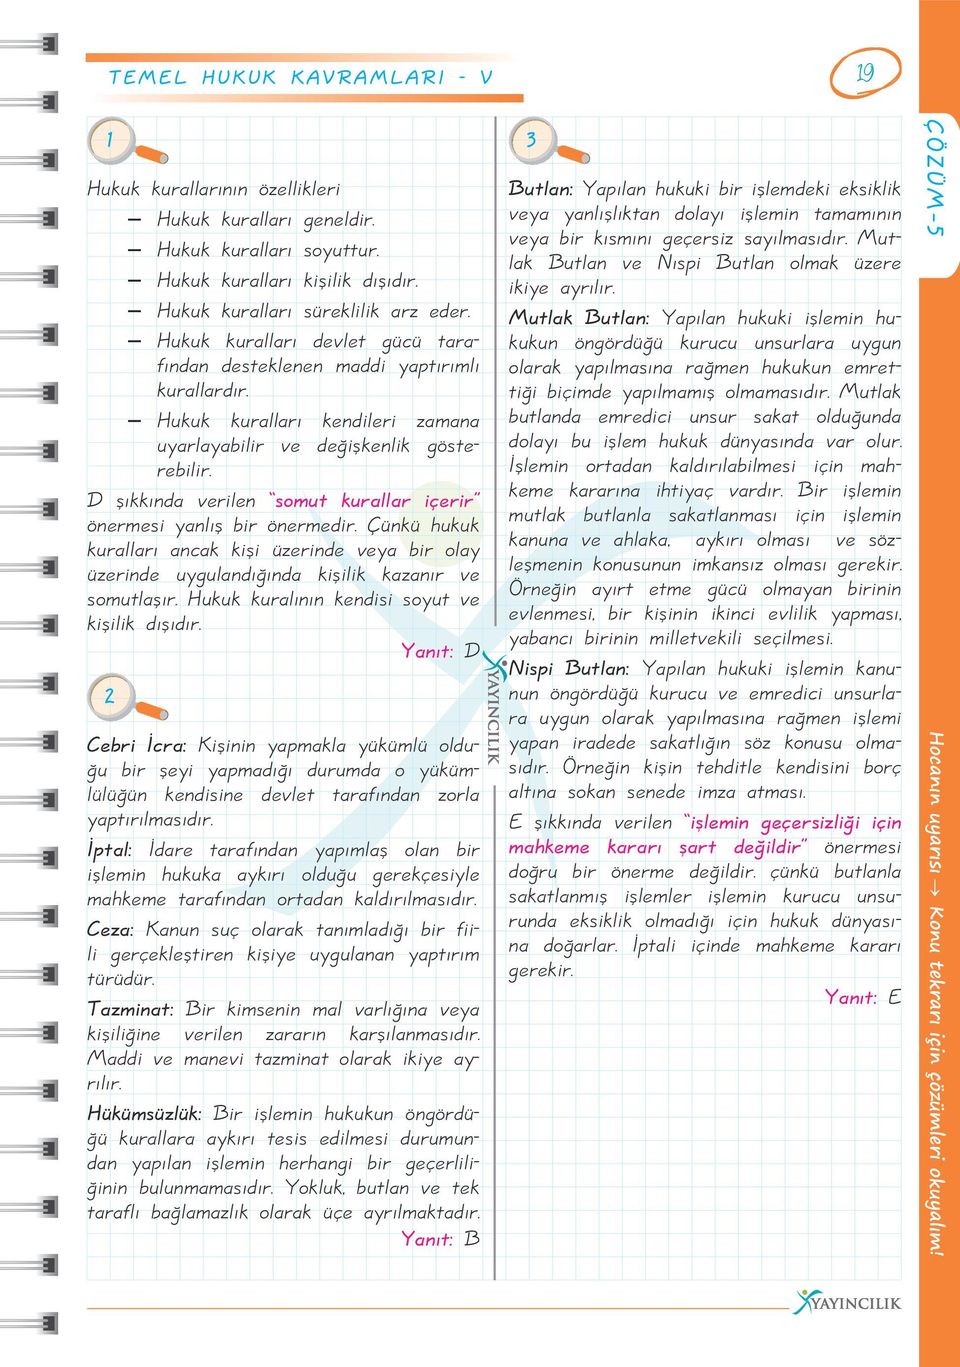 TEMEL HUKUK KAVRAMLARI - V
19
1
Hukuk kurallarının özellikleri
– Hukuk kuralları geneldir.
– Hukuk kuralları soyuttur.
– Hukuk kuralları kişilik dışıdır.
– Hukuk kuralları süreklilik arz eder.
– Hukuk kuralları devlet gücü tara-
fından desteklenen maddi yaptırımlı
kurallardır.
– Hukuk kuralları kendileri zamana
uyarlayabilir ve değişkenlik göste-
rebilir.
D şıkkında verilen “somut kurallar içerir”
önermesi yanlış bir önermedir. Çünkü hukuk
kuralları ancak kişi üzerinde veya bir olay
üzerinde uygulandığında kişilik kazanır ve
somutlaşır. Hukuk kuralının kendisi soyut ve
kişilik dışıdır.
Yanıt: D
2
Cebri İcra: Kişinin yapmakla yükümlü oldu-
ğu bir şeyi yapmadığı durumda o yüküm-
lülüğün kendisine devlet tarafından zorla
yaptırılmasıdır.
İptal: İdare tarafından yapımlaş olan bir
işlemin hukuka aykırı olduğu gerekçesiyle
mahkeme tarafından ortadan kaldırılmasıdır.
Ceza: Kanun suç olarak tanımladığı bir fii-
li gerçekleştiren kişiye uygulanan yaptırım
türüdür.
Tazminat: Bir kimsenin mal varlığına veya
kişiliğine verilen zararın karşılanmasıdır.
Maddi ve manevi tazminat olarak ikiye ay-
rılır.
Hükümsüzlük: Bir işlemin hukukun öngördü-
ğü kurallara aykırı tesis edilmesi durumun-
dan yapılan işlemin herhangi bir geçerlili-
ğinin bulunmamasıdır. Yokluk, butlan ve tek
taraflı bağlamazlık olarak üçe ayrılmaktadır.
Yanıt: B
YAYINCILIK
3
Butlan: Yapılan hukuki bir işlemdeki eksiklik
veya yanlışlıktan dolayı işlemin tamamının
veya bir kısmını geçersiz sayılmasıdır. Mut-
lak Butlan ve Nispi Butlan olmak üzere
ikiye ayrılır.
Mutlak Butlan: Yapılan hukuki işlemin hu-
kukun öngördüğü kurucu unsurlara uygun
olarak yapılmasına rağmen hukukun emret-
tiği biçimde yapılmamış olmamasıdır. Mutlak
butlanda emredici unsur sakat olduğunda
dolayı bu işlem hukuk dünyasında var olur.
İşlemin ortadan kaldırılabilmesi için mah-
keme kararına ihtiyaç vardır. Bir işlemin
mutlak butlanla sakatlanması için işlemin
kanuna ve ahlaka, aykırı olması ve söz-
leşmenin konusunun imkansız olması gerekir.
Örneğin ayırt etme gücü olmayan birinin
evlenmesi, bir kişinin ikinci evlilik yapması,
yabancı birinin milletvekili seçilmesi.
Nispi Butlan: Yapılan hukuki işlemin kanu-
nun öngördüğü kurucu ve emredici unsurla-
ra uygun olarak yapılmasına rağmen işlemi
yapan iradede sakatlığın söz konusu olma-
sıdır. Örneğin kişin tehditle kendisini borç
altına sokan senede imza atması.
E şıkkında verilen “işlemin geçersizliği için
mahkeme kararı şart değildir” önermesi
doğru bir önerme değildir. çünkü butlanla
sakatlanmış işlemler işlemin kurucu unsu-
runda eksiklik olmadığı için hukuk dünyası-
na doğarlar. İptali içinde mahkeme kararı
gerekir.
Yanıt: E
ÇÖZÜM-5
Hocanın uyarısı → Konu tekrarı için çözümleri okuyalım!
YAYINCILIK